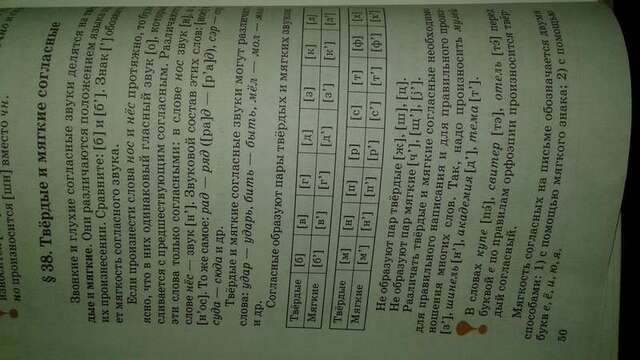 но произносится [шн] вместо чн.
§ 38. Твёрдые и мягкие согласные
Звонкие и глухие согласные звуки делятся на
дые и мягкие. Они различаются положением языка
их произнесении. Сравните: [б] и [б']. Знак ['] обозна
ет мягкость согласного звука.
Если произнести слова нос и нёс протяжно, то бу
ясно, что в них одинаковый гласный звук [о], котор
сливается с предшествующим согласным. Различа
эти слова только согласными: в слове нос звук [н], в
слове нёс — звук [н']. Звуковой состав этих слов: [нос]
[н'ос]. То же самое: рад — ряд ([ра]д — [р'а]д), сэр —
суда — сюда и др.
Твёрдые и мягкие согласные звуки могут различа
слова: удар — ударь, бить — быть, мёл — мол —
и др.
Согласные образуют пары твёрдых и мягких звуков
Твёрдые [б] [в] [г] [д] [з] [к] [л]
Мягкие [б'] [в'] [г'] [д'] [з'] [к'] [л']
Твёрдые [м] [н] [п] [р] [с] [т] [ф] [х]
Мягкие [м'] [н'] [п'] [р'] [с'] [т'] [ф'] [х']
Не образуют пар твёрдые [ж], [ш], [ц].
Не образуют пар мягкие [ч'], [ш'], [j'].
Различать твёрдые и мягкие согласные необходимо
для правильного написания и для правильного произ
ношения многих слов. Так, надо произносить музей
[з'], шинель [н'], академия [д'], тема [т'].
В словах купе [пэ], свитер [тэ], отель [тэ] перед
буквой е по правилам орфоэпии произносится твёр
дый согласный.
Мягкость согласных на письме обозначается двумя
способами: 1) с помощью мягкого знака; 2) с помощью
букв е, ё, и, ю, я.
50